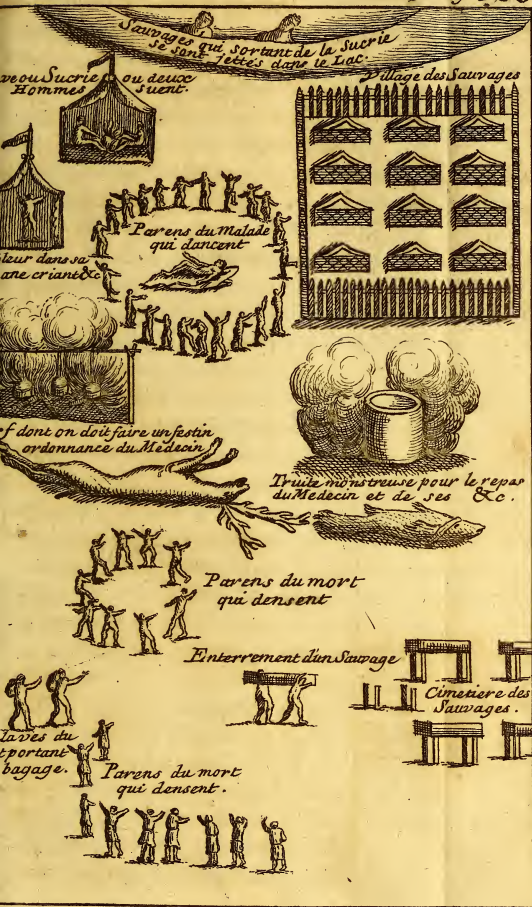 Sauvages qui sortant de la Sucrie
se sont jettés dans le Lac.
ve ou Sucrie ou deux
Hommes suent.
Village des Sauvages
Parens du Malade
qui dancent
leur dans sa
ane criant &c
f dont on doit faire un festin
ordonnance du Medecin
Truite monstreuse pour le repas
du Medecin et de ses &c.
Parens du mort
qui densent
Enterrement d'un Sauvage
Cimetiere des
Sauvages.
laves du
t portant
bagage.
Parens du mort
qui densent.